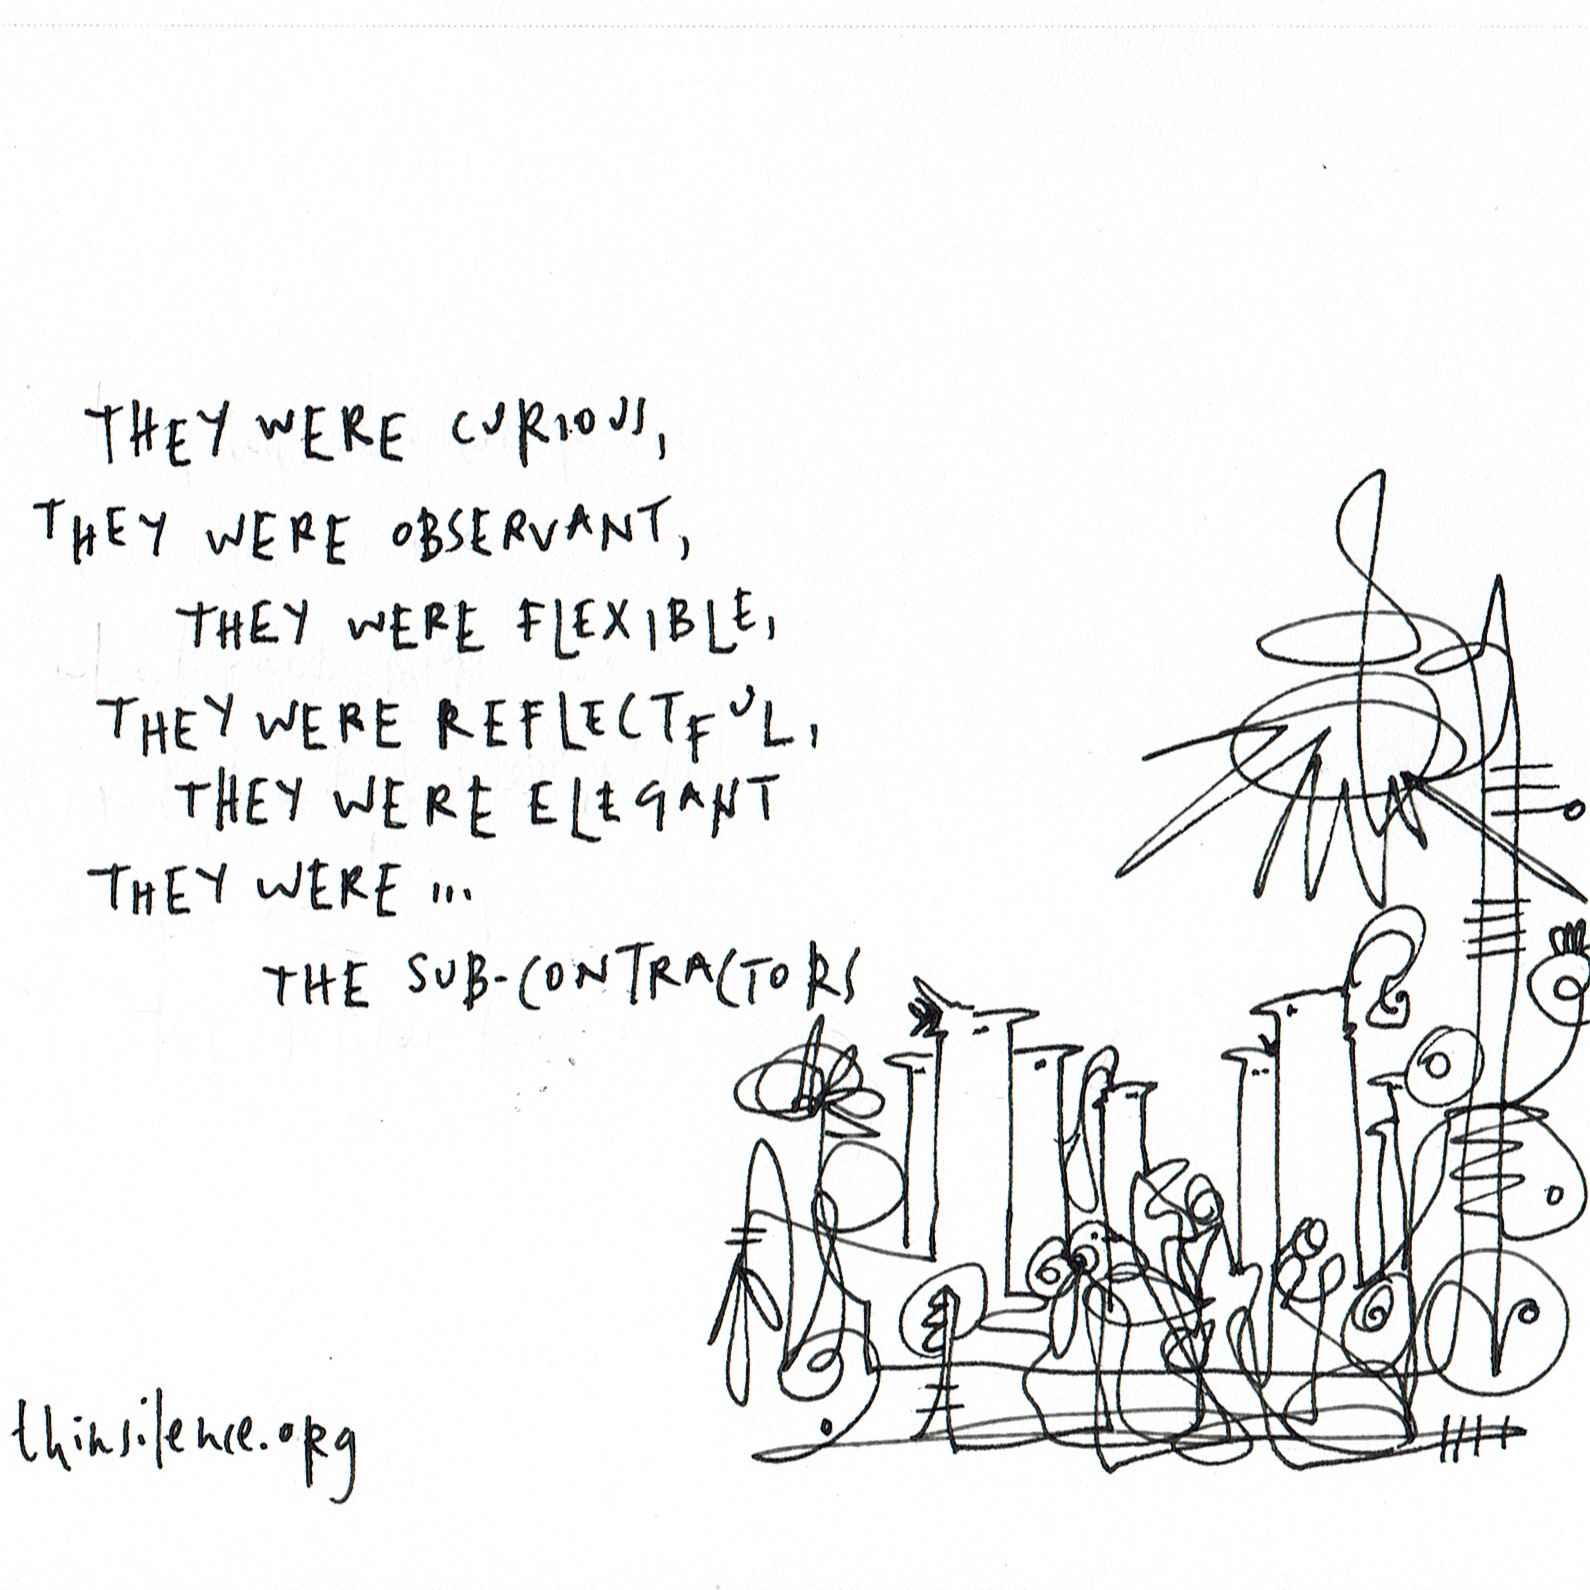 THEY WERE CURIOUS,
THEY WERE OBSERVANT,
THEY WERE FLEXIBLE,
THEY WERE REFLECTFUL,
THEY WERE ELEGANT
THEY WERE ...
THE SUB-CONTRACTORS
thinsilence.org